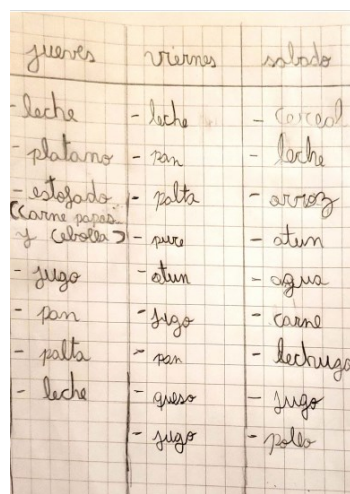 jueves
- leche
- platano
- estofado
(carne papas
y cebolla)
- jugo
- pan
- palta
- leche
viernes
- leche
- pan
- palta
- pure
- atun
- jugo
- pan
- queso
- jugo
sabado
- cereal
- leche
- arroz
- atun
- agua
- carne
- lechuga
- jugo
- pollo